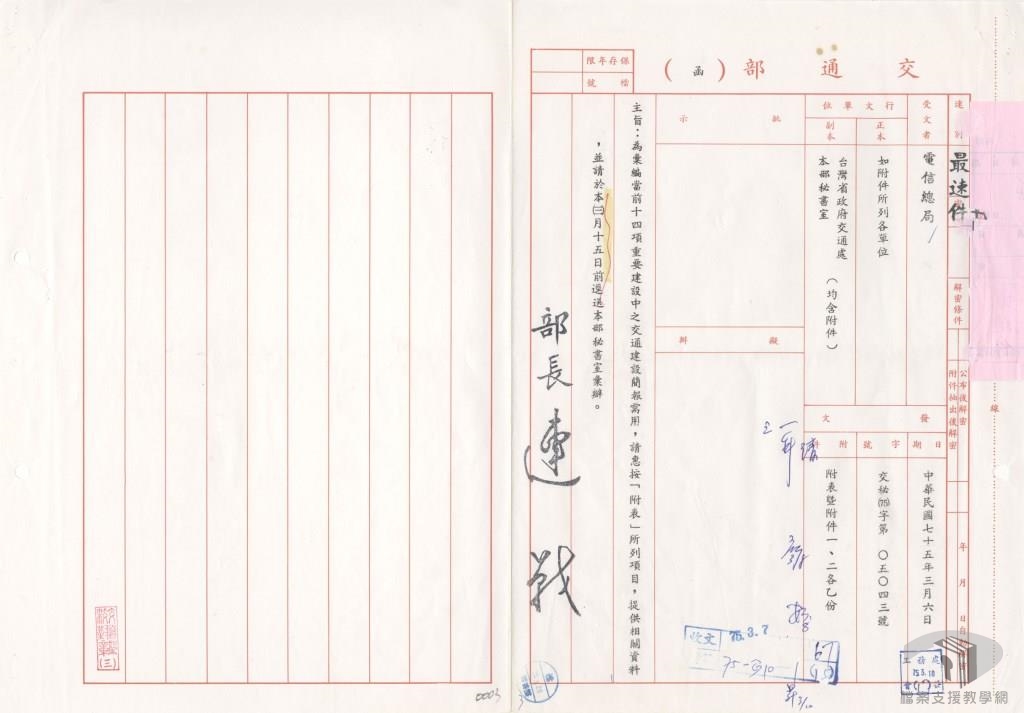 交通部（函）
保存年限
檔號
速別
最速件
解密條件
公布後解密
附件抽出後解密
年 月 日自
受文者
電信總局
行文單位
正本
如附件所列各單位
副本
台灣省政府交通處
本部秘書室
（均含附件）
發文
日期
中華民國七十五年三月六日
字號
交秘(75)字第 〇五〇四三號
附件
附表暨附件一、二各乙份
批示
擬辦
主旨：為彙編當前十四項重要建設中之交通建設簡報需用，請惠按「附表」所列項目，提供相關資料
，並請於本㈢月十五日前逕送本部秘書室彙辦。
部長 連 戰
線
收文
75.3.7
工務處
75.3.10
0003
(三)
檔案支援教學網